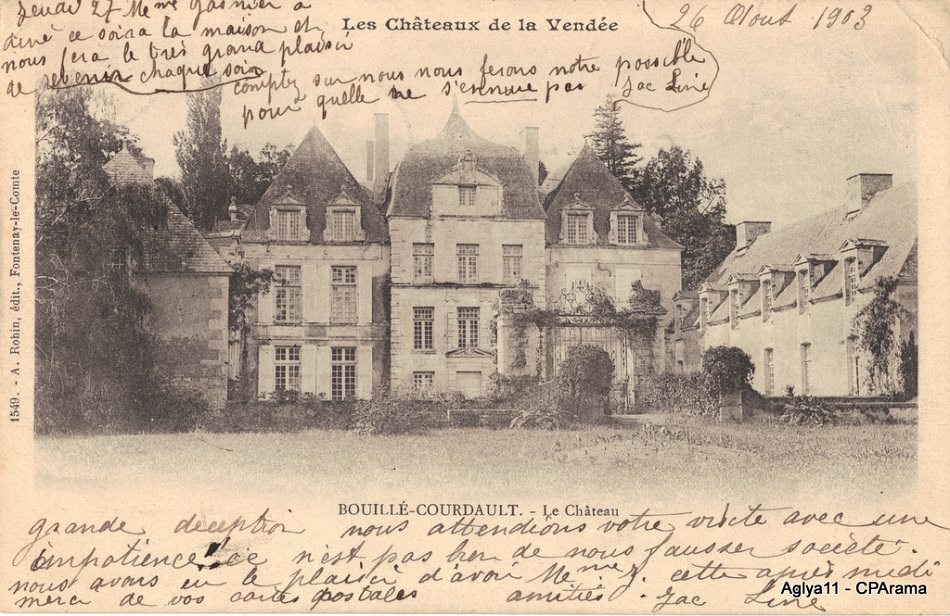 Jeudi 27 Mme Gasnier a
diné ce soir a la maison et
nous fera le très grand plaisir
de revenir chaque soir
Les Châteaux de la Vendée
26 Aout 1903
comptez sur nous nous ferons notre possible
pour quelle ne s'ennuie pas Jac Line
1549. - A. Robin, édit., Fontenay-le-Comte
BOUILLÉ-COURDAULT. - Le Château
grande déception nous attendions votre visite avec une
impatience ce n'est pas bien de nous fausser société.
nous avons eu le plaisir d'avoir Mme G. cette après midi
merci de vos cartes postales amitiés. Jac Line
Aglya11 - CPArama